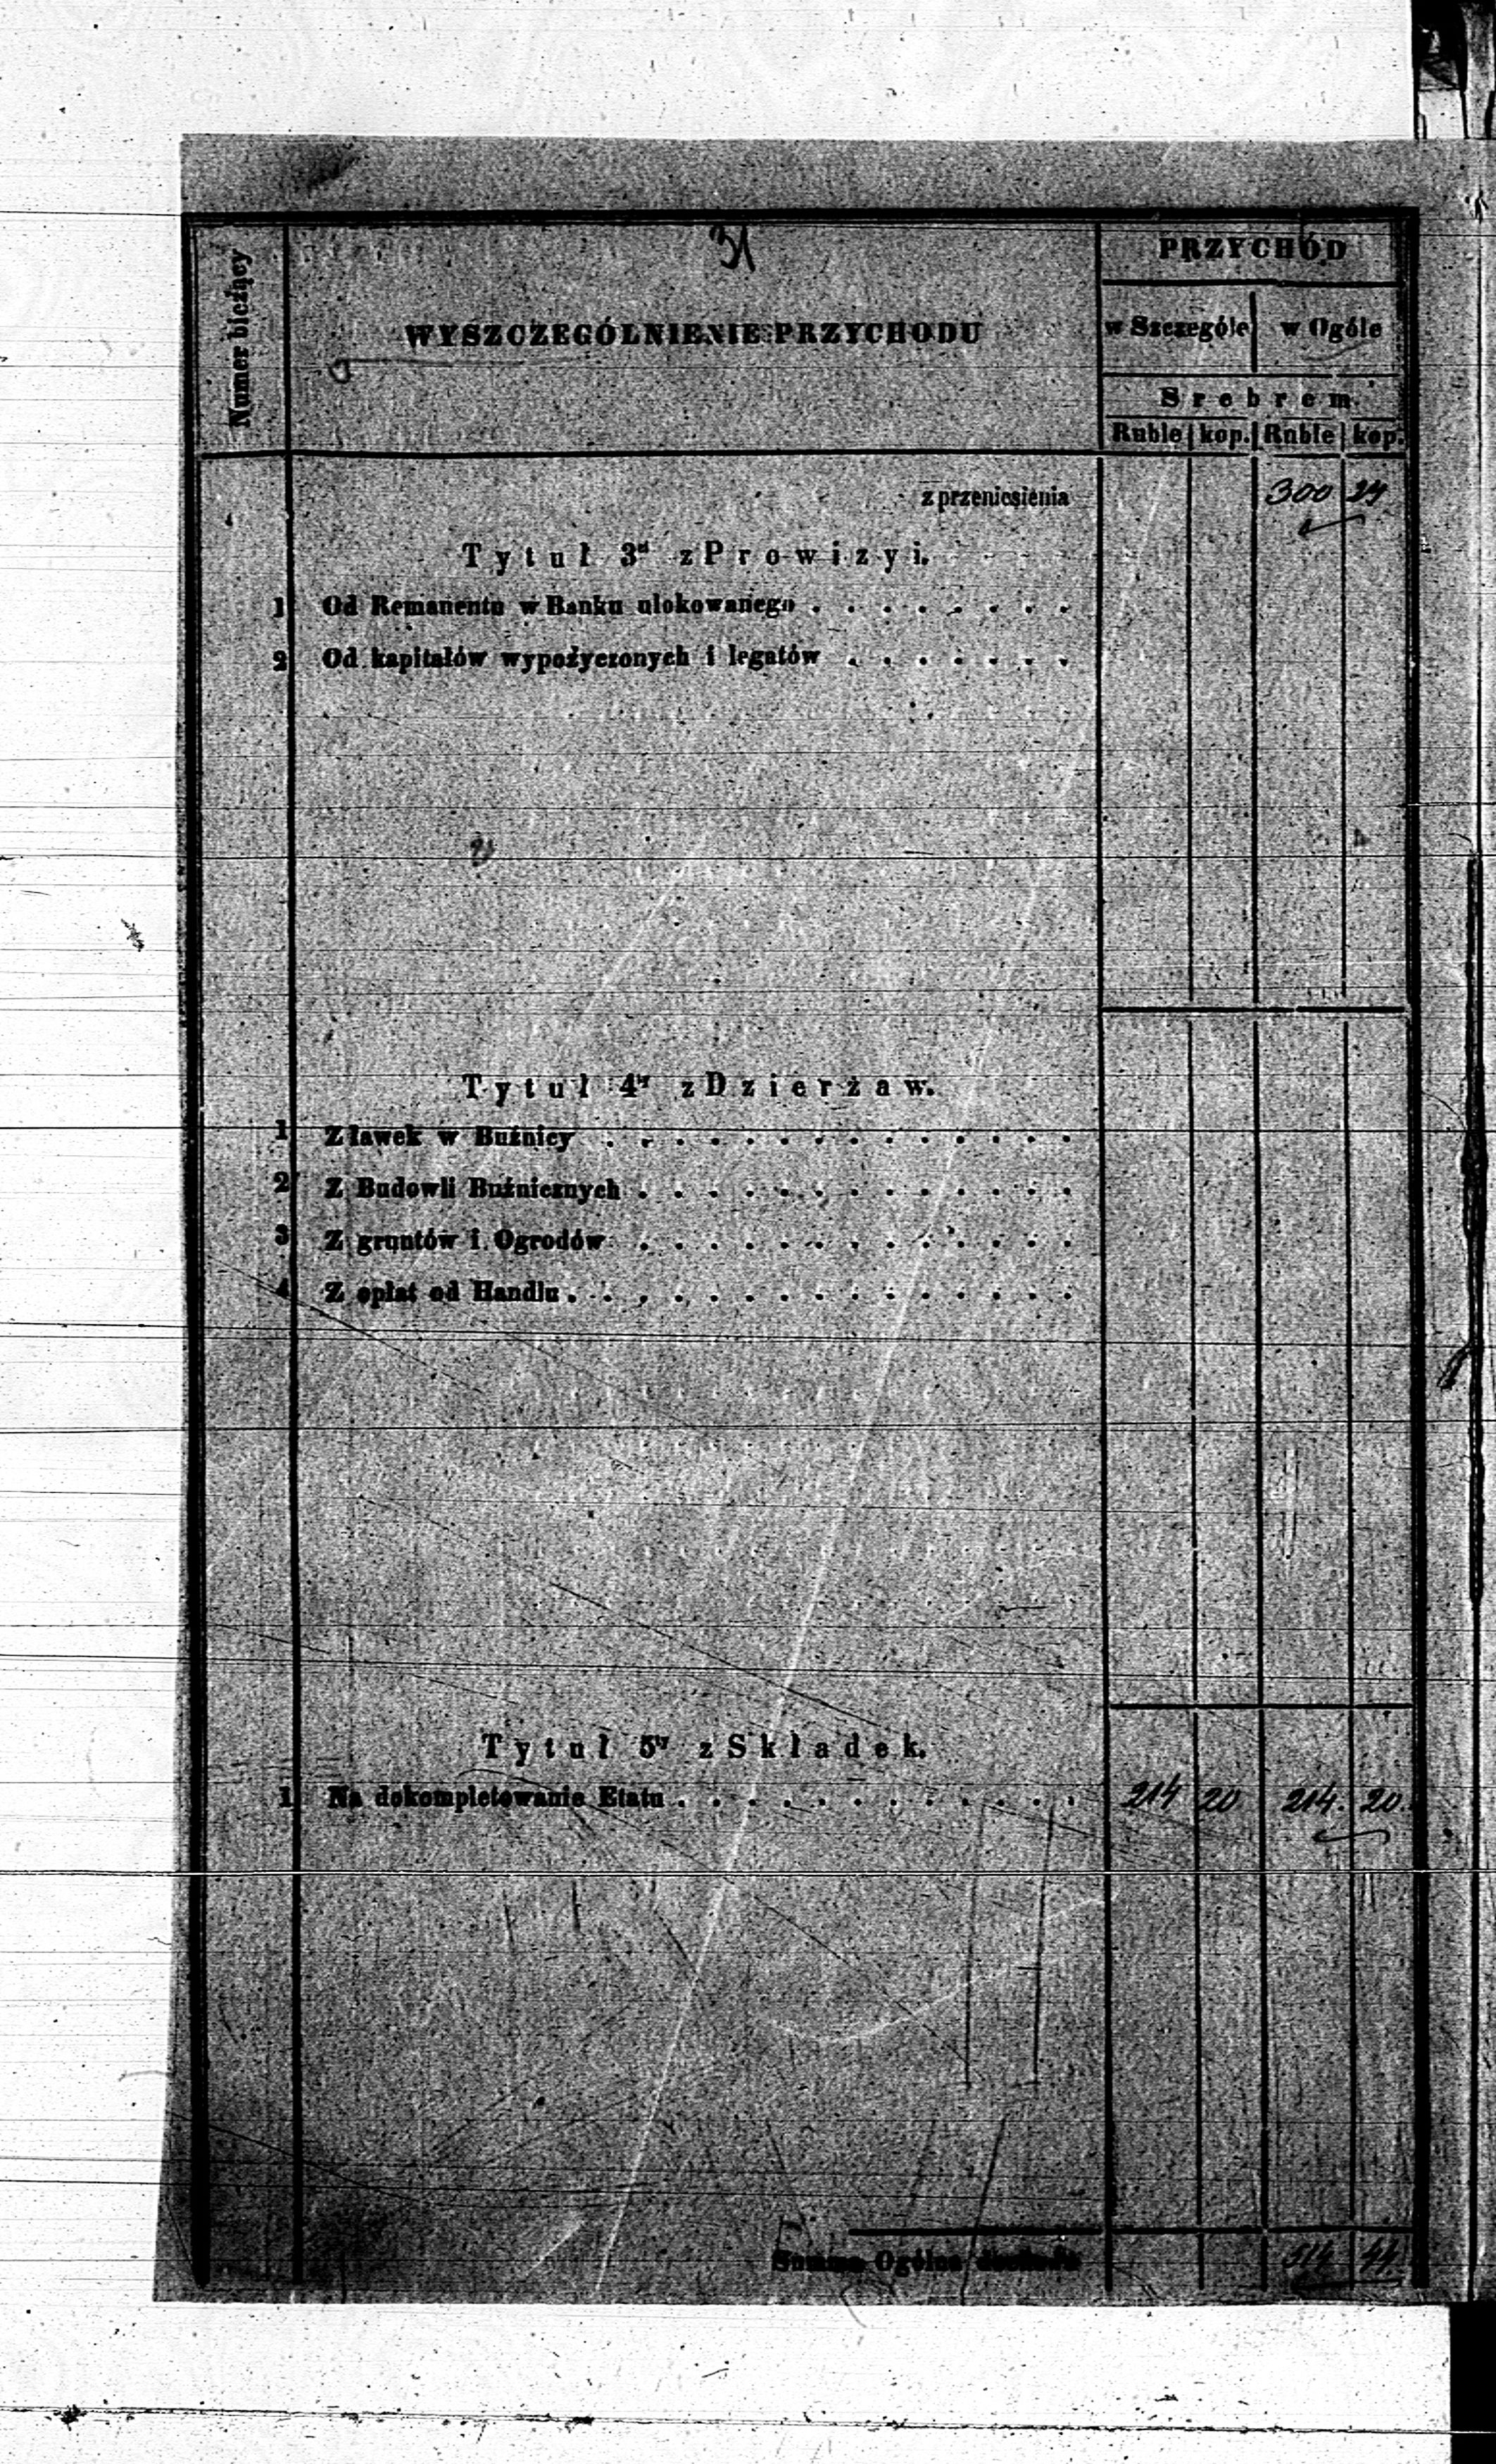 31
Numer bieżący
WYSZCZEGÓLNIENIE PRZYCHODU
PRZYCHÓD
w Szczególe w Ogóle
Srebrem.
Ruble kop. Ruble kop.
z przeniesienia 300 24
Tytuł 3ci z Prowizyi.
1 Od Remanentu w Banku ulokowanego . . . . . . . .
2 Od kapitałów wypożyczonych i legatów . . . . . . .
Tytuł 4ty z Dzierżaw.
1 Z ławek w Bużnicy . . . . . . . . . . . . . .
2 Z Budowli Bużnicznych . . . . . . . . . . . . .
3 Z gruntów i Ogrodów . . . . . . . . . . . . .
4 Z opłat od Handlu . . . . . . . . . . . . . . .
Tytuł 5ty z Składek.
1 Na dokompletowanie Etatu . . . . . . . . . . . . 214 20 214. 20.
Summa Ogólna 514 44